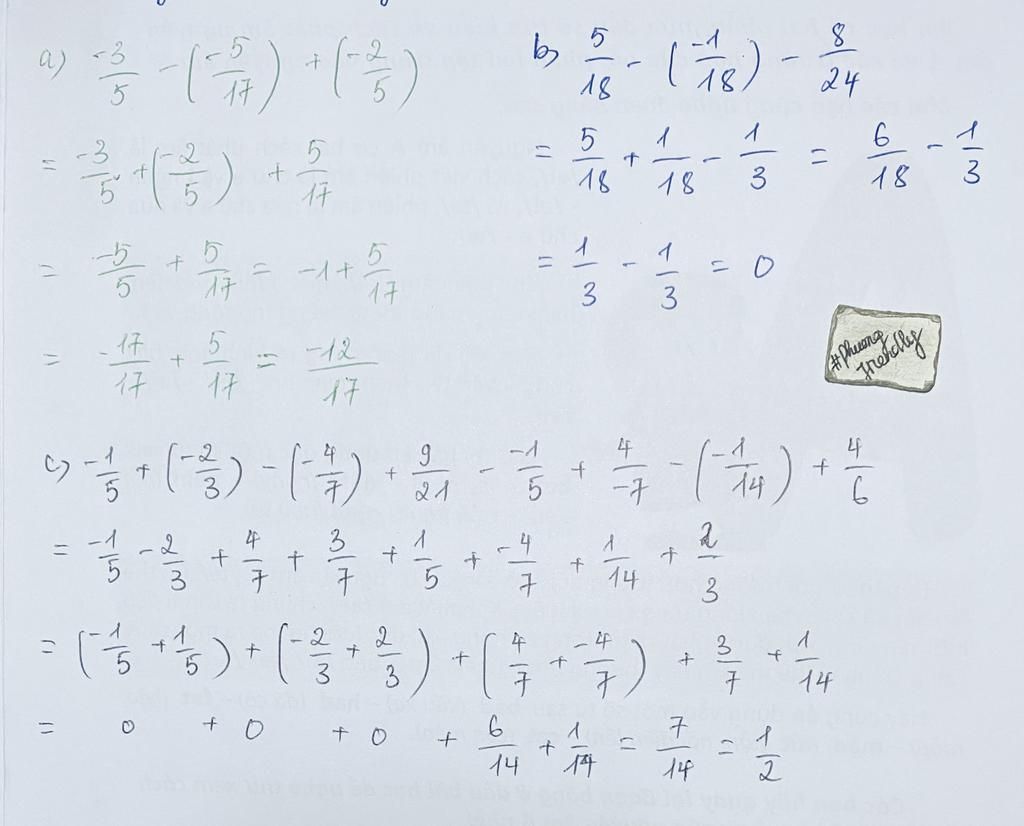 a) -3/5 - (-5/17) + (-2/5)
= -3/5 + (-2/5) + 5/17
= -5/5 + 5/17 = -1 + 5/17
= -17/17 + 5/17 = -12/17
b) 5/18 - (-1/18) 8/24
= 5/18 + 1/18 - 1/3 = 6/18 - 1/3
= 1/3 - 1/3 = 0
#phuong
c) -1/5 + (-2/3) - (-4/7) + 9/21 - -1/5 + 4/-7 - (-1/14) + 4/6
= -1/5 - 2/3 + 4/7 + 3/7 + 1/5 + -4/7 + 1/14 + 2/3
= (-1/5 + 1/5) + (-2/3 + 2/3) + (4/7 + -4/7) + 3/7 + 1/14
= 0 + 0 + 0 + 6/14 + 1/14 = 7/14 = 1/2